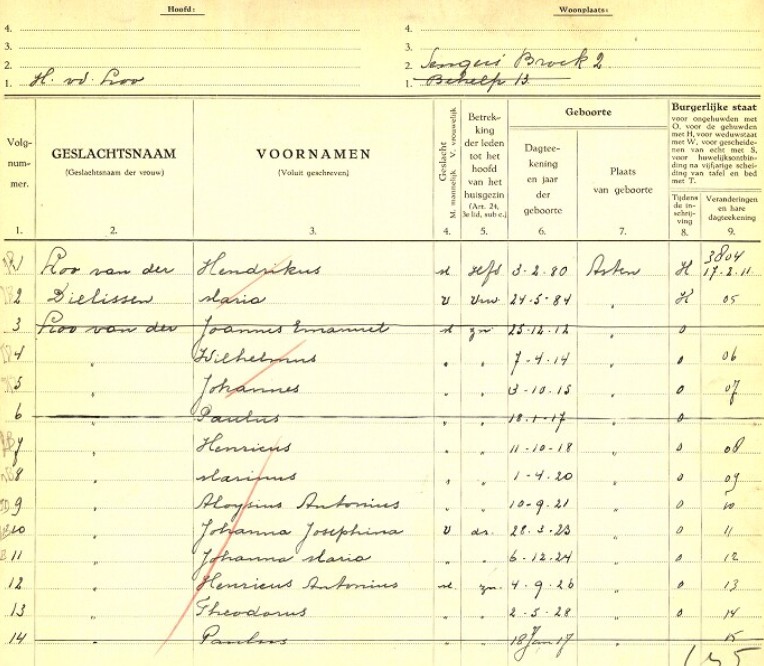 Hoofd: Woonplaats:
4. 4.
3. 3.
2. 2. Broek 2
1. H. vd. Loo 1. Behelp 13
Volg-
num-
mer. GESLACHTSNAAM
(Geslachtsnaam der vrouw) VOORNAMEN
(Voluit geschreven) Geslacht
M. mannelijk V. vrouwelijk Betrek-
king
der leden
tot het
hoofd
van het
huisgezin
(Art. 24,
3e lid, sub c.) Geboorte
Dagtee-
kening
en jaar
der
geboorte Plaats
van geboorte Burgerlijke staat
voor ongehuwden met
O, voor de gehuwden
met H, voor weduwstaat
met W, voor gescheide-
nen van echt met S,
voor huwelijksontbin-
ding na vijfjarige schei-
ding van tafel en bed
met T.
Tijdens
de in-
schrij-
ving Veranderingen
en hare
dagteekening
1. 2. 3. 4. 5. 6. 7. 8. 9.
3804
1 Loo van der Hendrikus M Hfd 3-2-80 Asten H 17-2-11
2 Dielissen Maria V Vrw 24-5-84 " H 05
3 Loo van der Joannes Emanuel M zn 25-12-12 " O
4 " Wilhelmus " " 7-4-14 " O 06
5 " Johannes " " 3-10-15 " O 07
6 " Paulus " " 18-1-17 " O
7 " Henricus " " 11-10-18 " O 08
8 " Marinus " " 1-4-20 " O 09
9 " Aloysius Antonius " " 10-9-21 " O 10
10 " Johanna Josephina V dr. 28-3-23 " O 11
11 " Johanna Maria " " 6-12-24 " O 12
12 " Henricus Antonius M. zn. 4-9-26 " O 13
13 " Theodorus " " 2-5-28 " O 14
14 " Paulus 18 Jan 17 " 15